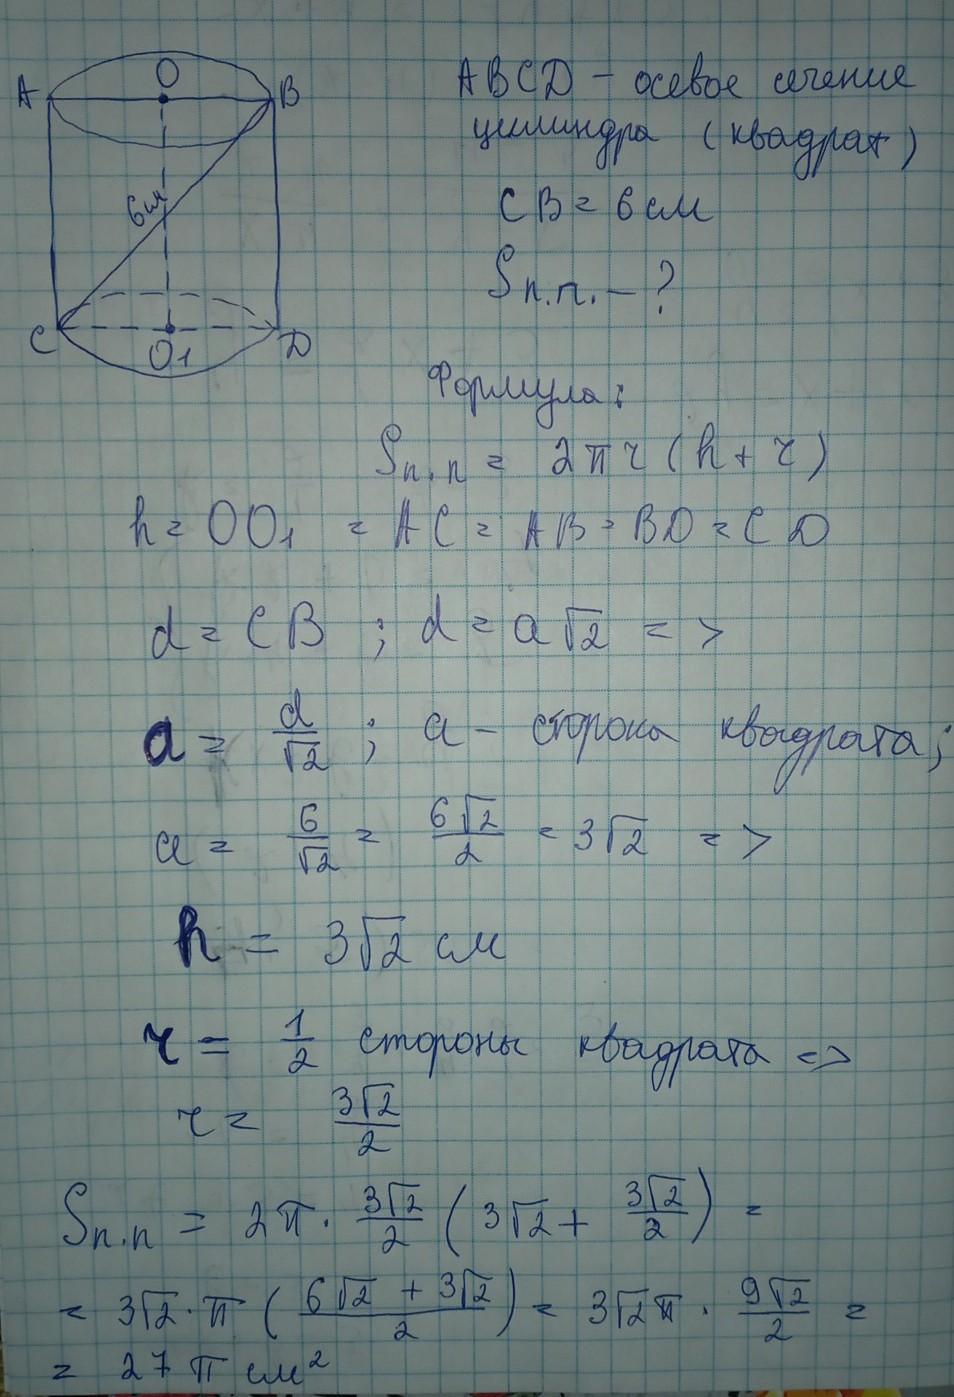 A O B
6см
C O₁ D
ABCD – осевое сечение
цилиндра (квадрат)
CB = 6 см
Sп.п. – ?
Формула:
Sп.п = 2πr (h + r)
h = OO₁ = AC = AB = BD = CD
d = CB ; d = a√2 =>
a = d/√2 ; a – сторона квадрата;
a = 6/√2 = 6√2/2 = 3√2 =>
h = 3√2 см
r = 1/2 стороны квадрата =>
r = 3√2/2
Sп.п = 2π · 3√2/2 (3√2 + 3√2/2) =
= 3√2 · π (6√2 + 3√2/2) = 3√2π · 9√2/2 =
= 27π см²